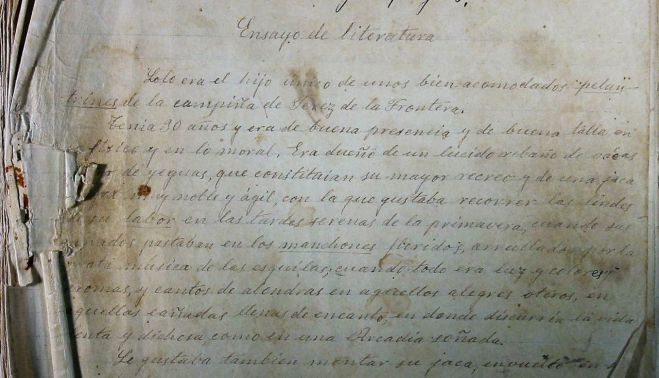 Ensayo de literatura
Lolo era el hijo único de unos bien acomodados pelan-
trines de la campiña de Jerez de la Frontera.
Tenia 30 años y era de buena presencia y de buena talla en
lo físico y en lo moral. Era dueño de un lucido rebaño de vacas
de yeguas, que constituian su mayor recreo y de una jaca
muy noble y ágil, con la que gustaba recorrer las lindes
de su labor en las tardes serenas de la primavera, cuando sus
ganados pastaban en los manchones floridos, arrullados por la
grata música de las esquilas, cuando, todo era luz y colores
aromas, y cantos de alondras en aquellos alegres oteros, en
aquellas cañadas llenas de encanto, en donde discurria la vida
lenta y dichosa como en una Arcadia soñada.
Le gustaba tambien montar su jaca, envuelto en